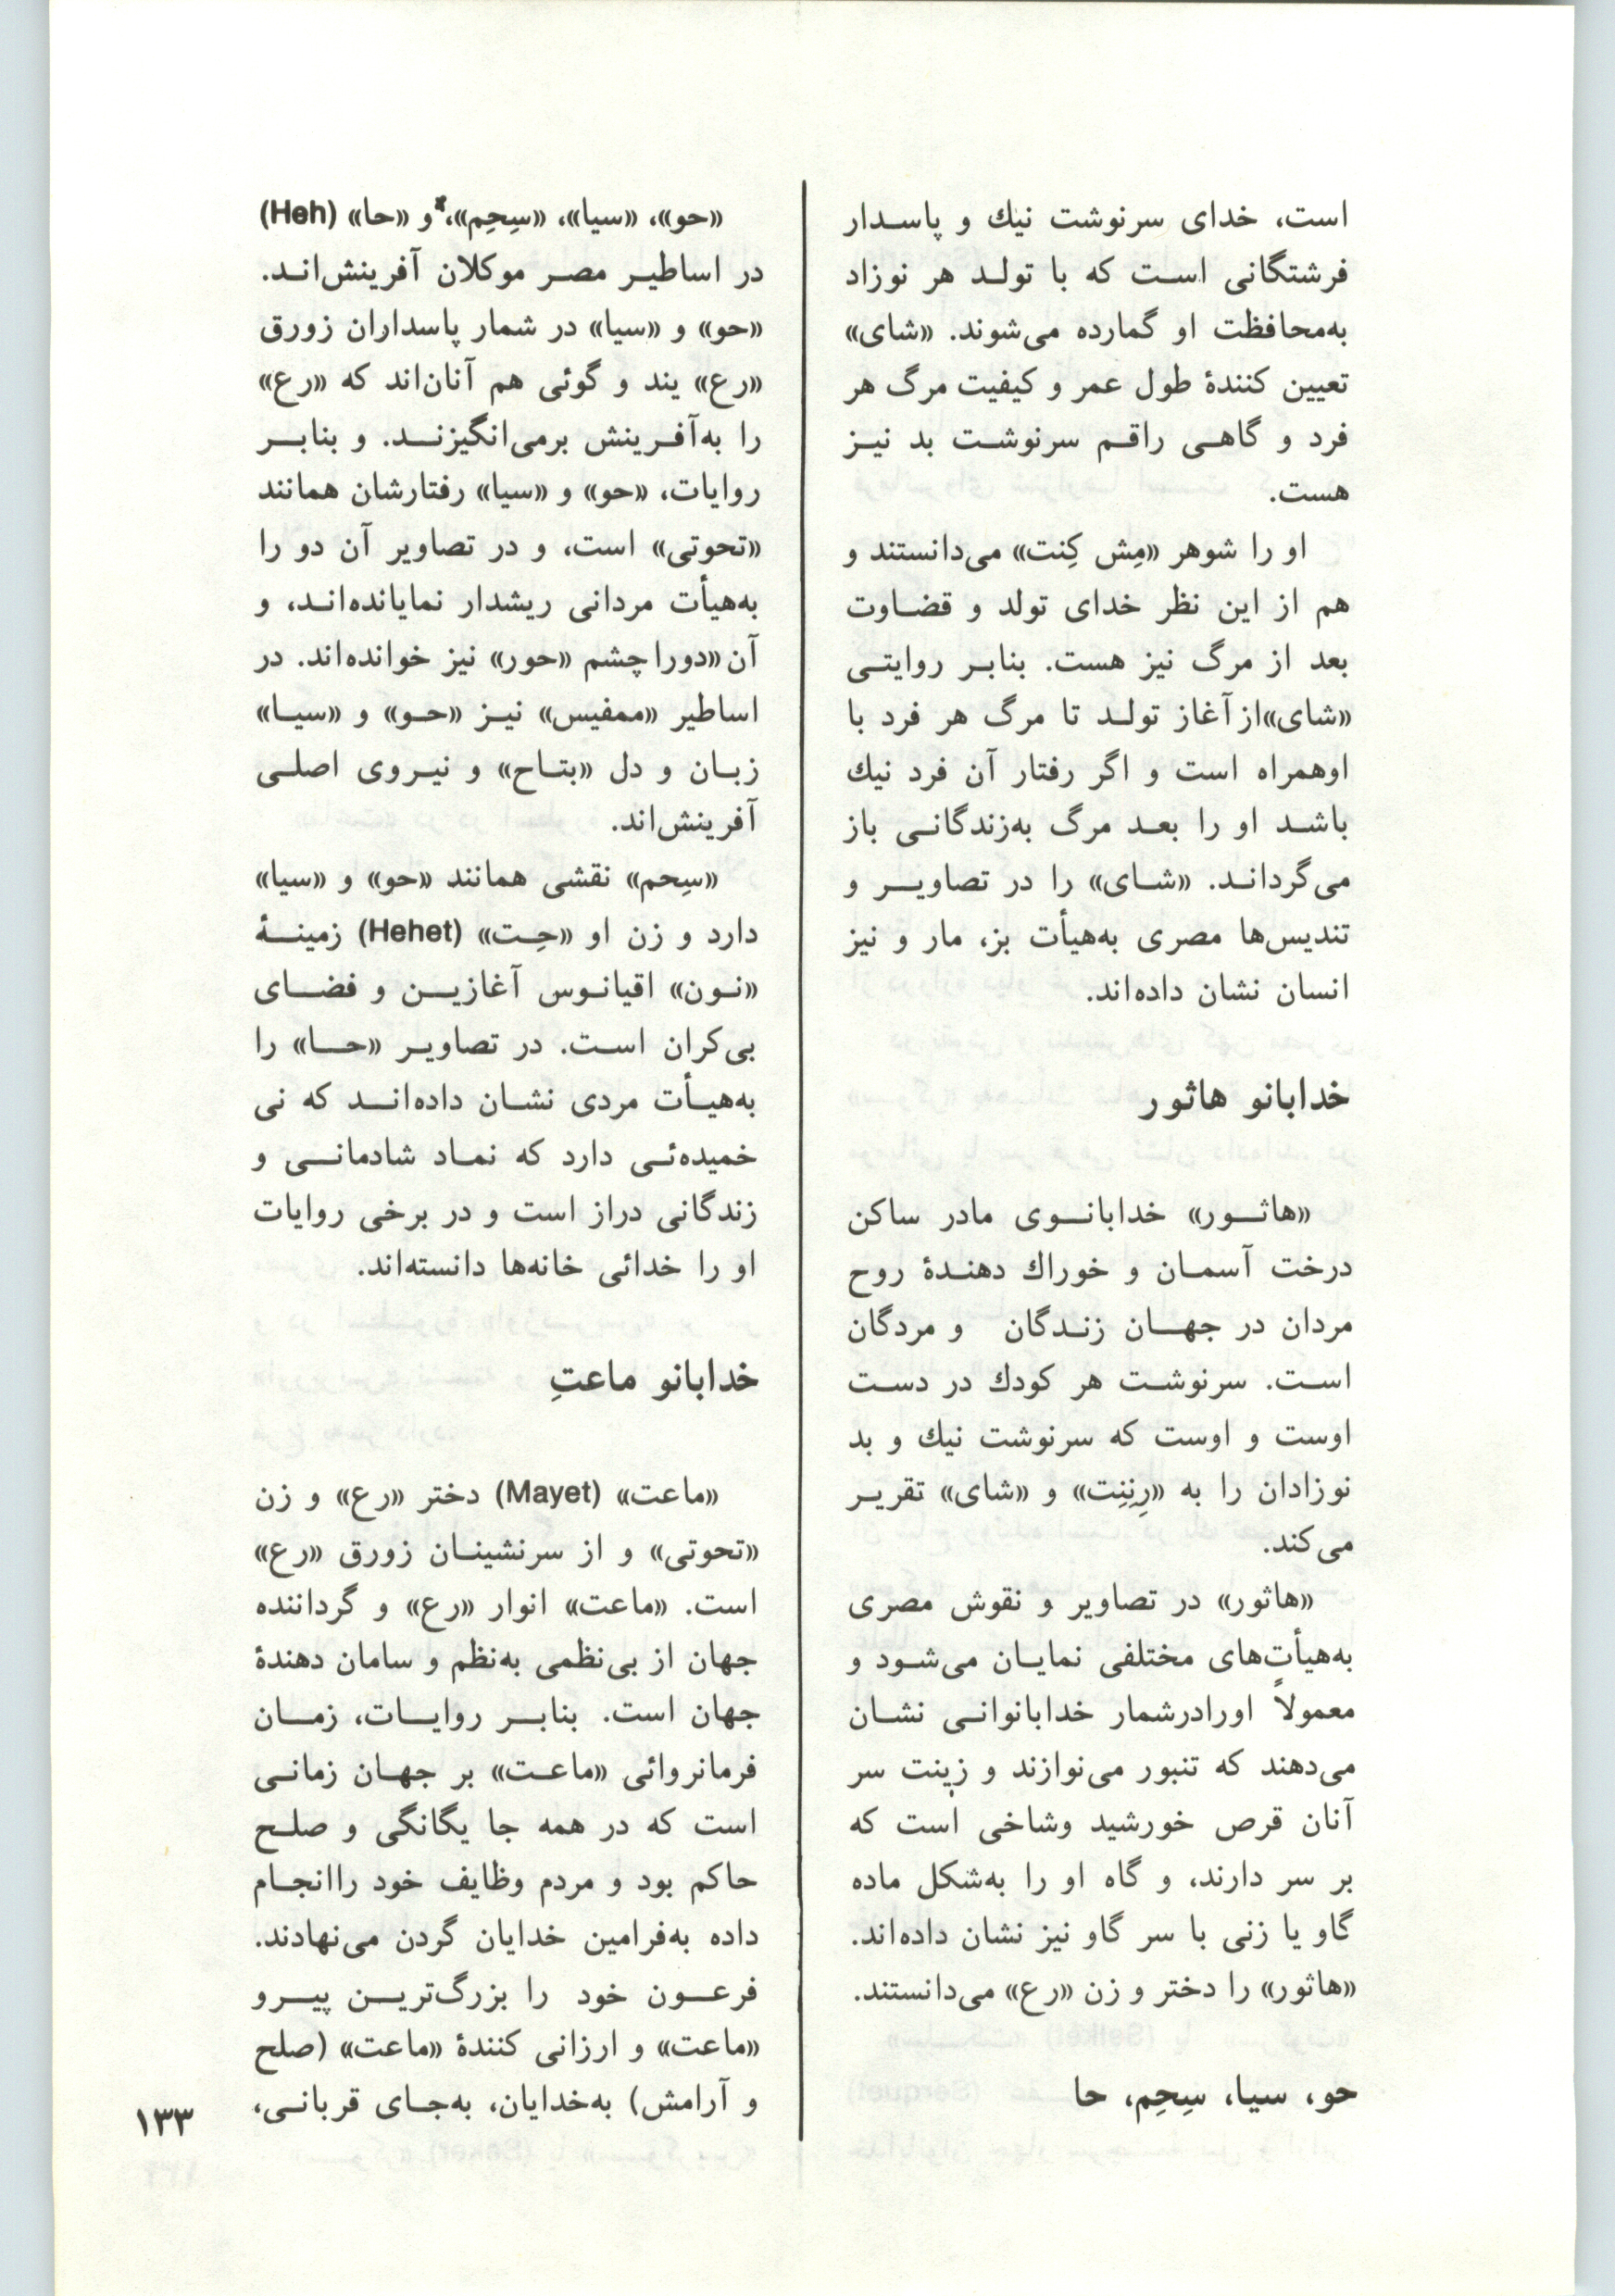 است، خدای سرنوشت نیك و پاسدار
فرشتگانی است که با تولد هر نوزاد
به‌محافظت او گمارده می‌شوند. «شای»
تعیین کنندهٔ طول عمر و کیفیت مرگ هر
فرد و گاهی راقم سرنوشت بد نیز
هست.
او را شوهر «مِش کِنت» می‌دانستند و
هم از این نظر خدای تولد و قضاوت
بعد از مرگ نیز هست. بنابر روایتی
«شای»از آغاز تولد تا مرگ هر فرد با
اوهمراه است و اگر رفتار آن فرد نیك
باشد او را بعد مرگ به‌زندگانی باز
می‌گرداند. «شای» را در تصاویر و
تندیس‌ها مصری به‌هیأت بز، مار و نیز
انسان نشان داده‌اند.
خدابانو هاثور
«هاثور» خدابانوی مادر ساکن
درخت آسمان و خوراك دهندهٔ روح
مردان در جهان زندگان و مردگان
است. سرنوشت هر کودك در دست
اوست و اوست که سرنوشت نیك و بد
نوزادان را به «رِنِنِت» و «شای» تقریر
می‌کند.
«هاثور» در تصاویر و نقوش مصری
به‌هیأت‌های مختلفی نمایان می‌شود و
معمولاً اورادرشمار خدابانوانی نشان
می‌دهند که تنبور می‌نوازند و زینت سر
آنان قرص خورشید وشاخی است که
بر سر دارند، و گاه او را به‌شکل ماده
گاو یا زنی با سر گاو نیز نشان داده‌اند.
«هاثور» را دختر و زن «رع» می‌دانستند.
حو، سیا، سِحِم، حا
«حو»، «سیا»، «سِحِم»،* و «حا» (Heh)
در اساطیر مصر موکلان آفرینش‌اند.
«حو» و «سیا» در شمار پاسداران زورق
«رع» یند و گوئی هم آنان‌اند که «رع»
را به‌آفرینش برمی‌انگیزند. و بنابر
روایات، «حو» و «سیا» رفتارشان همانند
«تحوتی» است، و در تصاویر آن دو را
به‌هیأت مردانی ریشدار نمایانده‌اند، و
آن «دورا چشم «حور» نیز خوانده‌اند. در
اساطیر «ممفیس» نیز «حو» و «سیا»
زبان و دل «بتاح» و نیروی اصلی
آفرینش‌اند.
«سِحم» نقشی همانند «حو» و «سیا»
دارد و زن او «حِت» (Hehet) زمینهٔ
«نون» اقیانوس آغازین و فضای
بی‌کران است. در تصاویر «حا» را
به‌هیأت مردی نشان داده‌اند که نی
خمیده‌ئی دارد که نماد شادمانی و
زندگانی دراز است و در برخی روایات
او را خدائی خانه‌ها دانسته‌اند.
خدابانو ماعتِ
«ماعت» (Mayet) دختر «رع» و زن
«تحوتی» و از سرنشینان زورق «رع»
است. «ماعت» انوار «رع» و گرداننده
جهان از بی‌نظمی به‌نظم و سامان دهندهٔ
جهان است. بنابر روایات، زمان
فرمانروائی «ماعت» بر جهان زمانی
است که در همه جا یگانگی و صلح
حاکم بود و مردم وظایف خود راانجام
داده به‌فرامین خدایان گردن می‌نهادند.
فرعون خود را بزرگ‌ترین پیرو
«ماعت» و ارزانی کنندهٔ «ماعت» (صلح
و آرامش) به‌خدایان، به‌جای قربانی،
۱۳۳